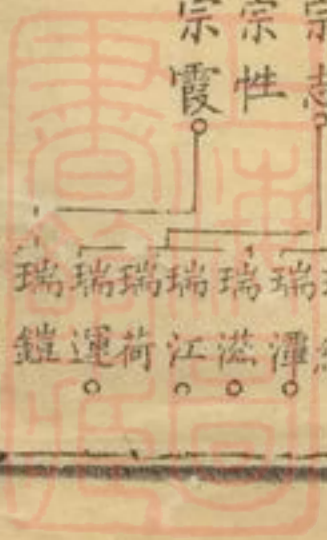 宗志
宗性
宗霞
瑞潭
瑞滋
瑞江
瑞荷
瑞運
瑞鎧